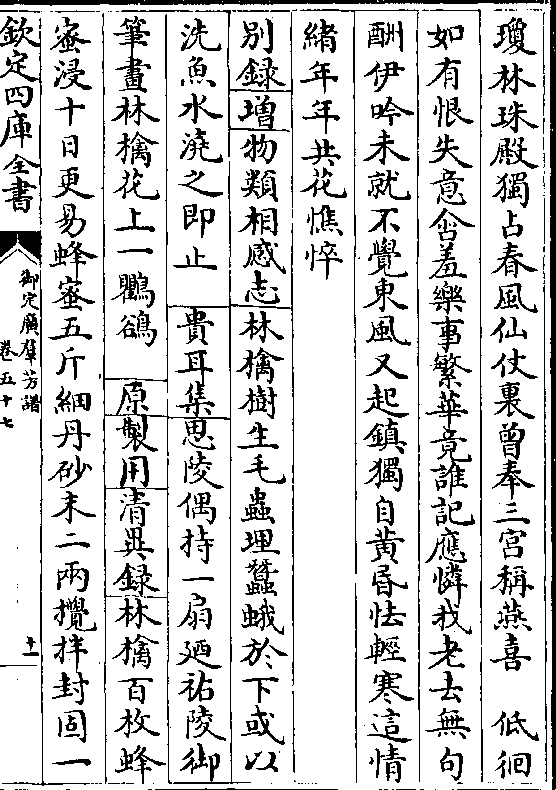 瓊林珠殿獨占春風仙仗裏曾奉三宮稱燕喜　低徊
如有恨失意含羞樂事繁華竟誰記應憐我老去無句
酬伊吟未就不覺東風又起鎮獨自黃昏怯輕寒這情
緒年年共花憔悴
別録增物類相感志林檎樹生毛蟲埋蠶蛾於下或以
洗魚水澆之即止　貴耳集思陵偶持一扇廼祐陵御
筆畫林檎花上一鸜鵒　原製用清異録林檎百枚蜂
蜜浸十日更易蜂蜜五斤細丹砂末二兩攪拌封固一
欽定四庫全書
御定廣羣芳譜
卷五十七
十一